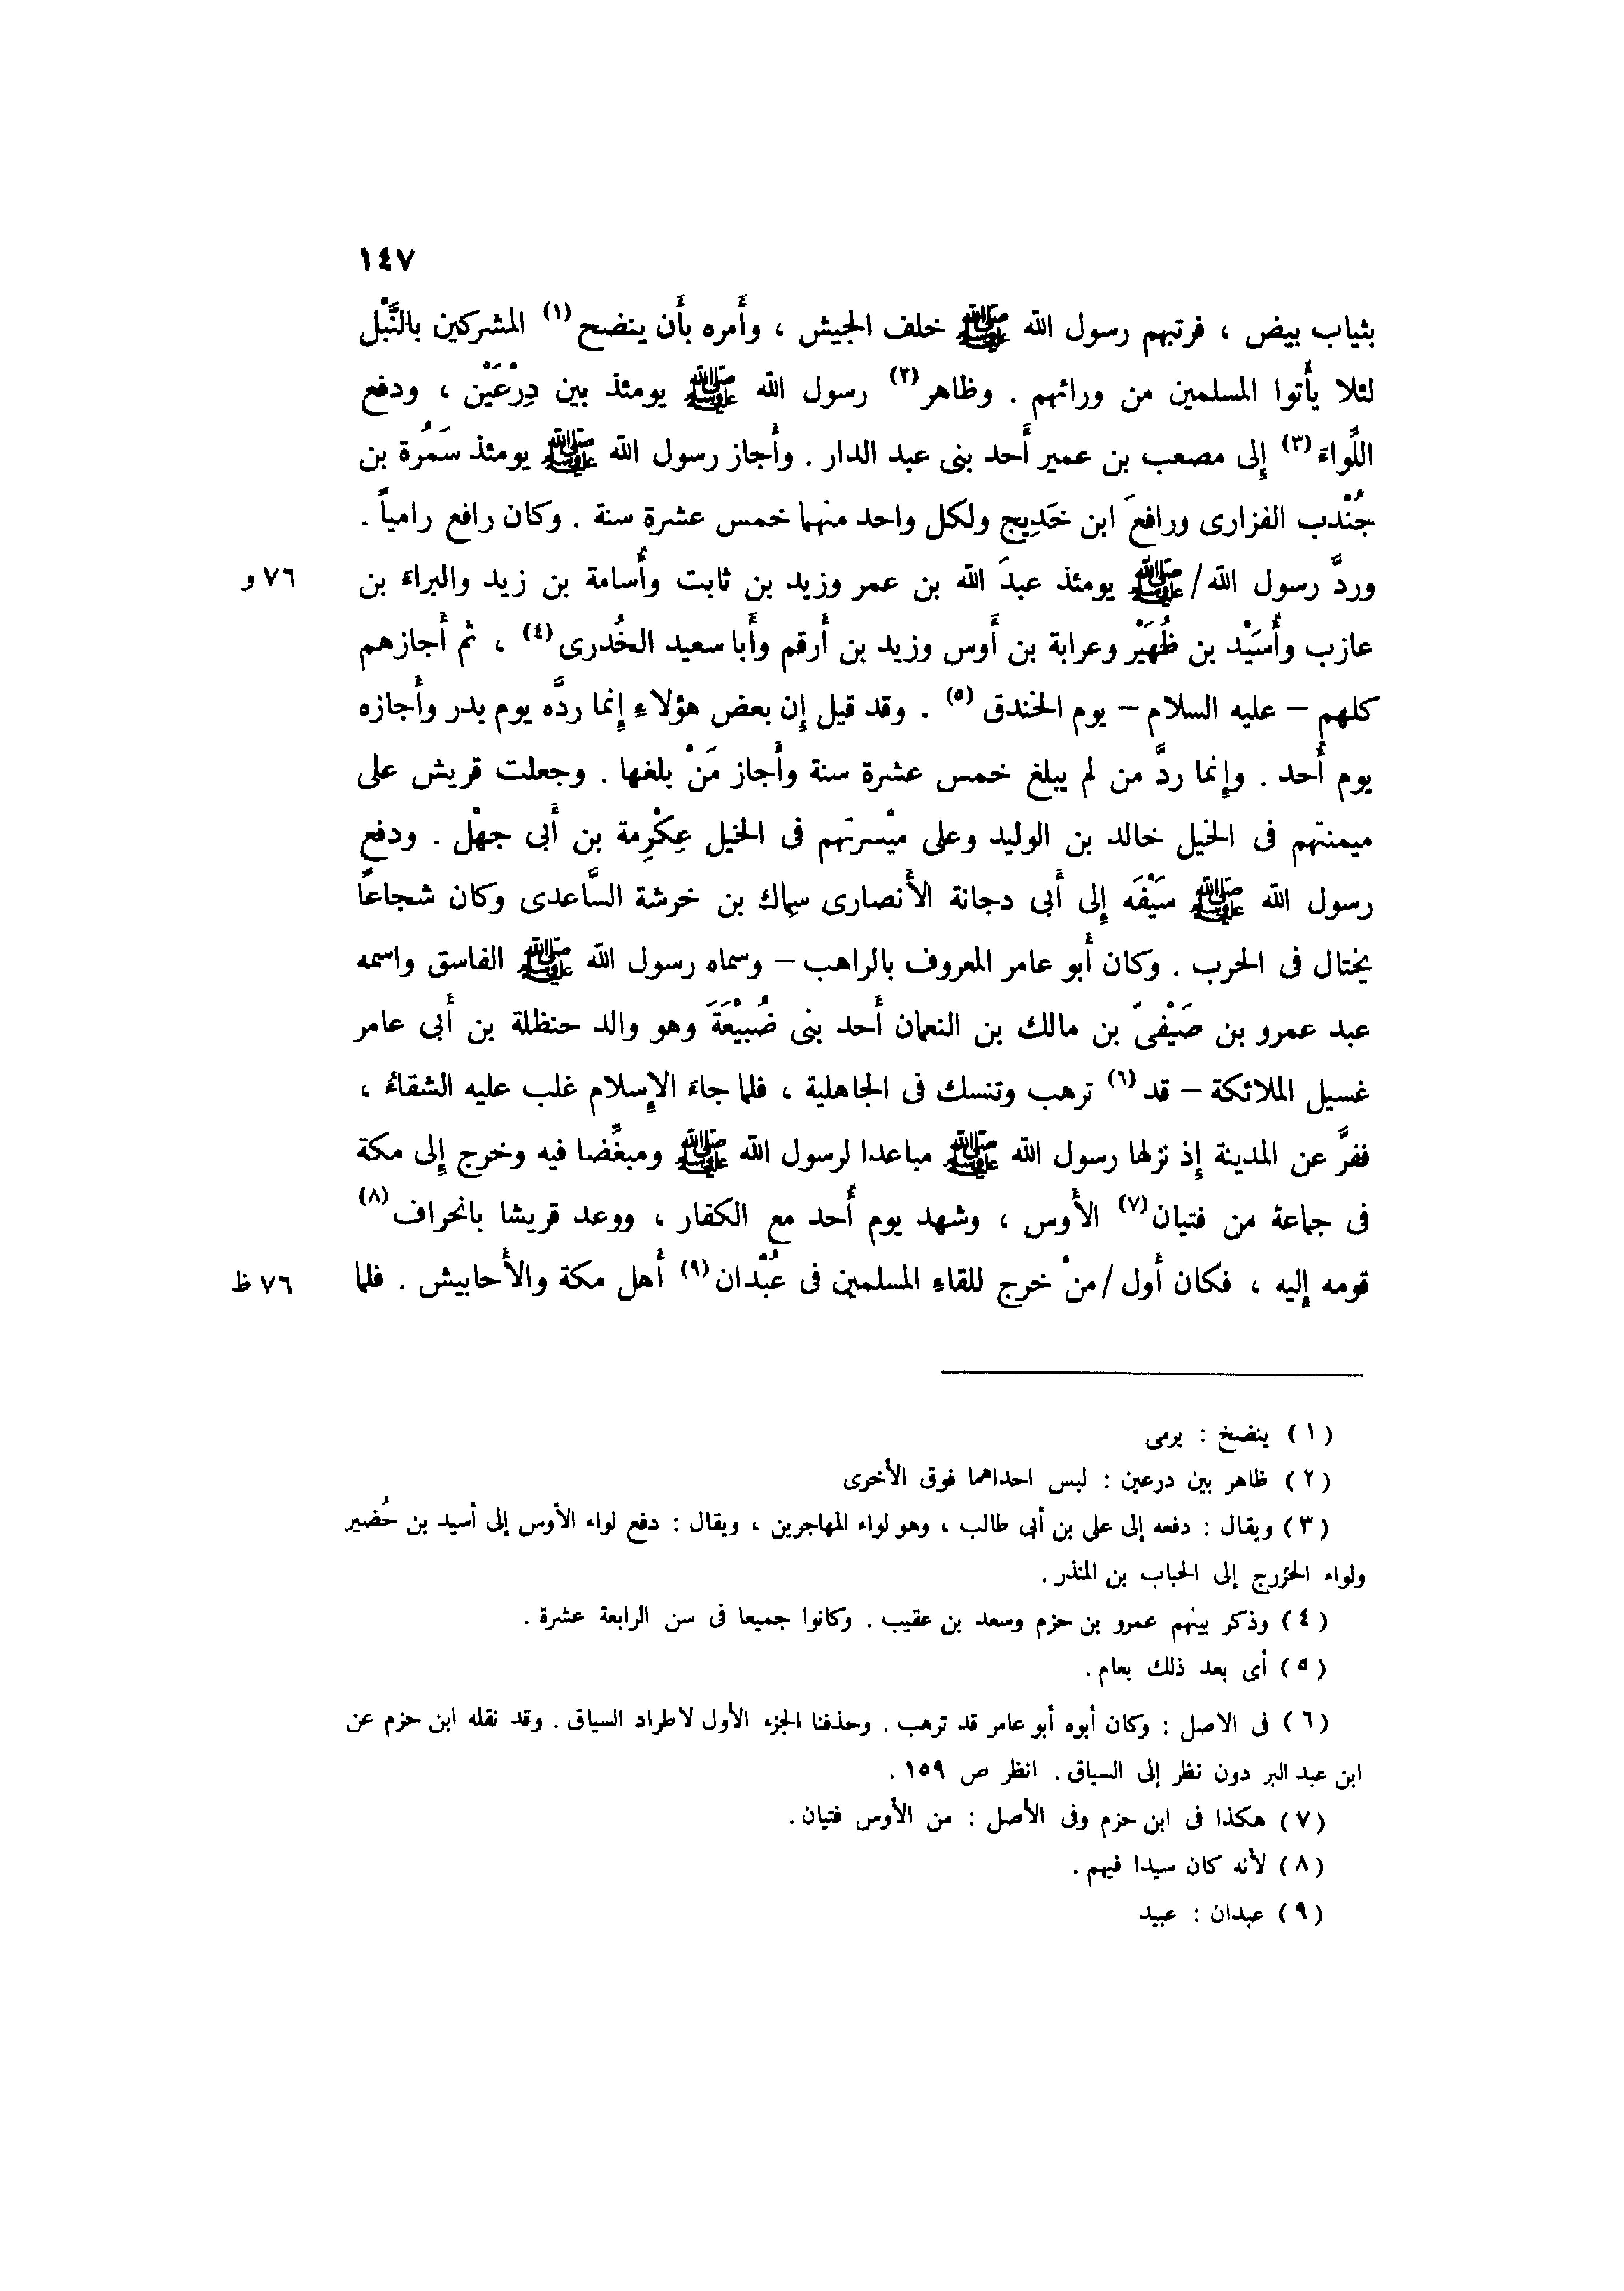 ١٤٧
بثياب بيض ، فرتبهم رسول الله ﷺ خلف الجيش ، وأَمره بأَن ينضح (١) المشركين بالنَّبْل
لئلا يأْتوا المسلمين من ورائهم . وظاهر (٢) رسول الله ﷺ يومئذ بين دِرْعَيْن ، ودفع
اللِّواءَ (٣) إِلى مصعب بن عمير أَحد بنى عبد الدار . وأَجاز رسول الله ﷺ يومئذ سَمُرة بن
جُنْدب الفزارى ورافعَ ابن خَدِيج ولكل واحد منهما خمس عشرة سنة . وكان رافع رامياً .
وردَّ رسول الله / ﷺ يومئذ عبدَ الله بن عمر وزيد بن ثابت وأُسامة بن زيد والبراءَ بن ٧٦ و
عازب وأُسَيْد بن ظُهَيْر وعرابة بن أَوس وزيد بن أَرقم وأَبا سعيد الخُدرى (٤) ، ثم أَجازهم
كلهم – عليه السلام – يوم الخندق (٥) . وقد قيل إِن بعض هؤلاءِ إِنما ردَّه يوم بدر وأَجازه
يوم أُحد . وإِنما ردَّ من لم يبلغ خمس عشرة سنة وأَجاز مَنْ بلغها . وجعلت قريش على
ميمنتهم فى الخيل خالد بن الوليد وعلى ميْسرتهم فى الخيل عِكْرِمة بن أَبى جهْل . ودفع
رسول الله ﷺ سَيْفَه إِلى أَبى دجانة الأَنصارى سِماك بن خرشة السَّاعدى وكان شجاعاً
يختال فى الحرب . وكان أَبو عامر المعروف بالراهب – وسماه رسول الله ﷺ الفاسق واسمه
عبد عمرو بن صَيْفىّ بن مالك بن النعمان أَحد بنى ضُبيْعَةَ وهو والد حنظلة بن أَبى عامر
غسيل الملائكة – قد (٦) ترهب وتنسك فى الجاهلية ، فلما جاءَ الإِسلام غلب عليه الشقاءُ ،
ففرَّ عن المدينة إِذ نزلها رسول الله ﷺ مباعدا لرسول الله ﷺ ومبغِّضا فيه وخرج إِلى مكة
فى جماعة من فتيان (٧) الأَوس ، وشهد يوم أُحد مع الكفار ، ووعد قريشا بانحراف (٨)
قومه إِليه ، فكان أَول / منْ خرج للقاءِ المسلمين فى عُبْدان (٩) أَهل مكة والأَحابيش . فلما ٧٦ ظ
(١) ينضخ : يرمى
(٢) ظاهر بين درعين : لبس احداهما فوق الأخرى
(٣) ويقال : دفعه إلى على بن أبى طالب ، وهو لواء المهاجرين ، ويقال : دفع لواء الأوس إلى أسيد بن حُضير
ولواء الخزرج إلى الحباب بن المنذر .
(٤) وذكر بينهم عمرو بن حزم وسعد بن عقيب . وكانوا جميعا فى سن الرابعة عشرة .
(٥) أى بعد ذلك بعام .
(٦) فى الاصل : وكان أبوه أبو عامر قد ترهب . وحذفنا الجزء الأول لاطراد السياق . وقد نقله ابن حزم عن
ابن عبد البر دون نظر إلى السياق . انظر ص ١٥٩ .
(٧) هكذا فى ابن حزم وفى الأصل : من الأوس فتيان .
(٨) لأنه كان سيدا فيهم .
(٩) عبدان : عبيد